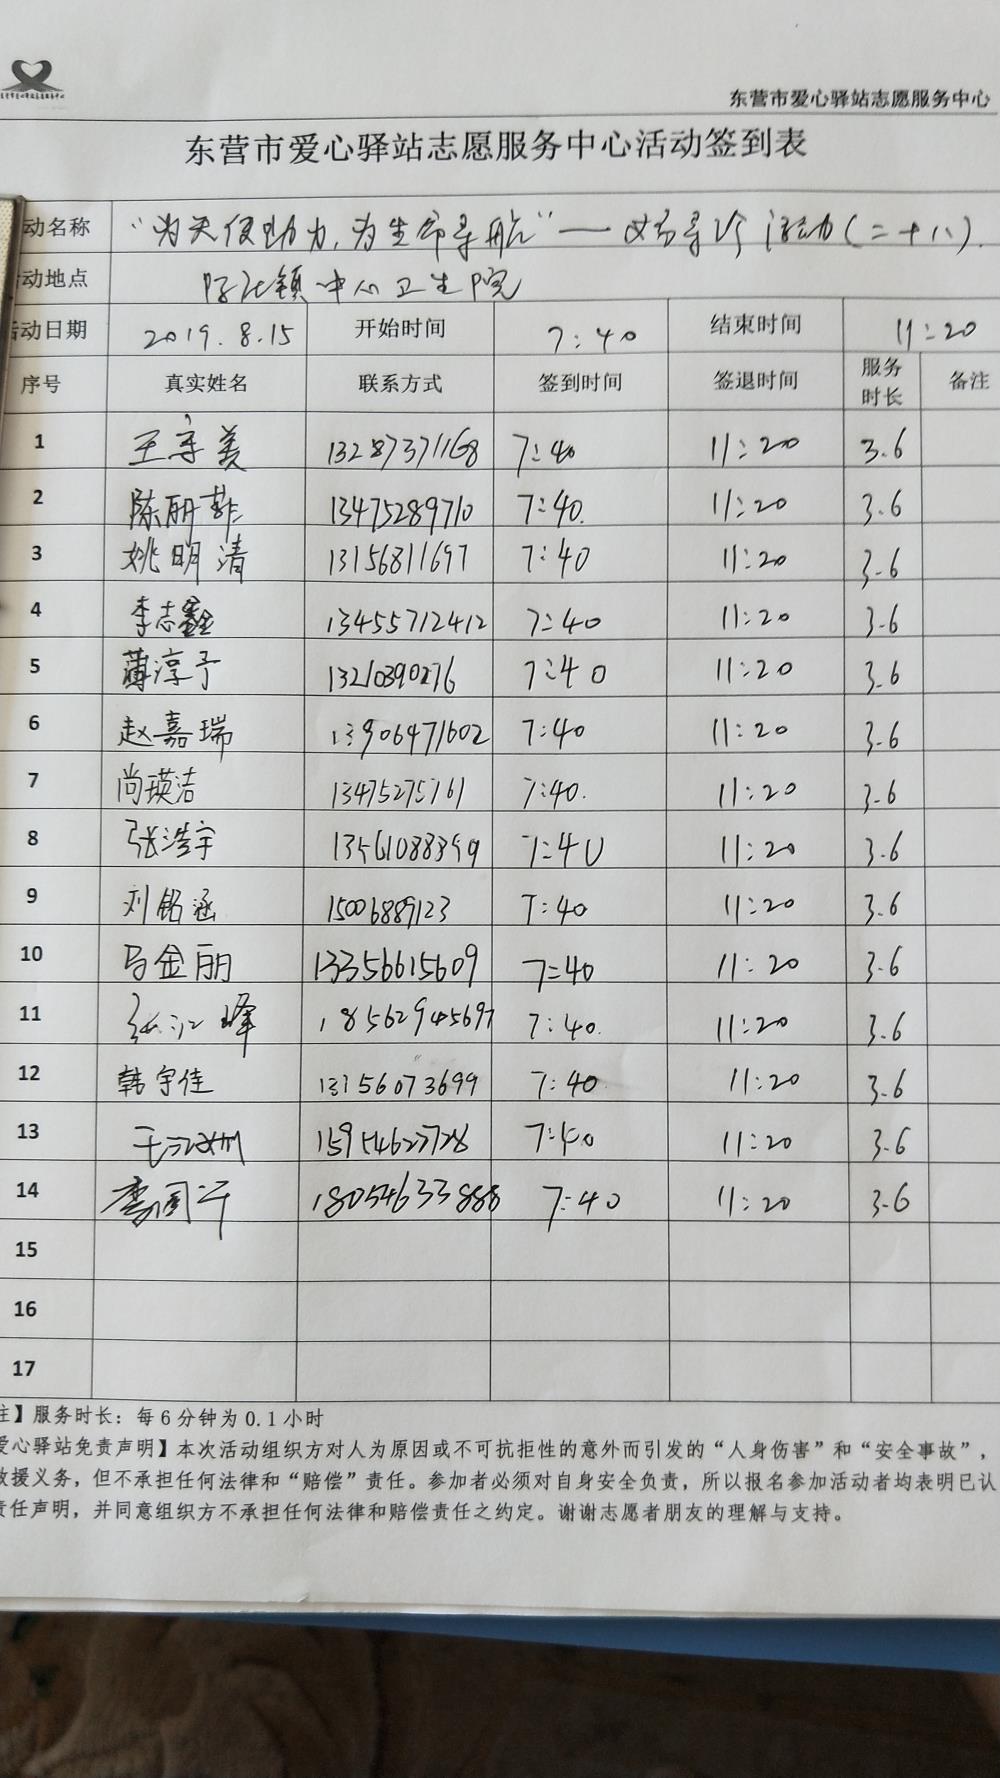 东营市爱心驿站志愿服务中心
东营市爱心驿站志愿服务中心活动签到表
动名称 “为天使助力,为生命导航”——义务导诊活动(二十八).
动地点 中心卫生院
活动日期 2019.8.15 开始时间 7:40 结束时间 11:20
序号 真实姓名 联系方式 签到时间 签退时间 服务时长 备注
1 王守美 13287371168 7:40 11:20 3.6
2 陈丽菲 13475289710 7:40. 11:20 3.6
3 姚明清 13156811697 7:40 11:20 3.6
4 李志鑫 13455712412 7:40 11:20 3.6
5 薄淳予 13210390276 7:40 11:20 3.6
6 赵嘉瑞 13906471602 7:40 11:20 3.6
7 尚瑛洁 13475275761 7:40. 11:20 3.6
8 张浩宇 13561088399 7:40 11:20 3.6
9 刘铭涵 15006889123 7:40 11:20 3.6
10 马金丽 13356615609 7:40 11:20 3.6
11 18562945697 7:40. 11:20 3.6
12 韩宇佳 13156073699 7:40 11:20 3.6
13 15954627728 7:40 11:20 3.6
14 18054633888 7:40 11:20 3.6
15
16
17
注】服务时长:每6分钟为0.1小时
爱心驿站免责声明】本次活动组织方对人为原因或不可抗拒性的意外而引发的“人身伤害”和“安全事故”,
救援义务,但不承担任何法律和“赔偿”责任。参加者必须对自身安全负责,所以报名参加活动者均表明已认
责任声明,并同意组织方不承担任何法律和赔偿责任之约定。谢谢志愿者朋友的理解与支持。